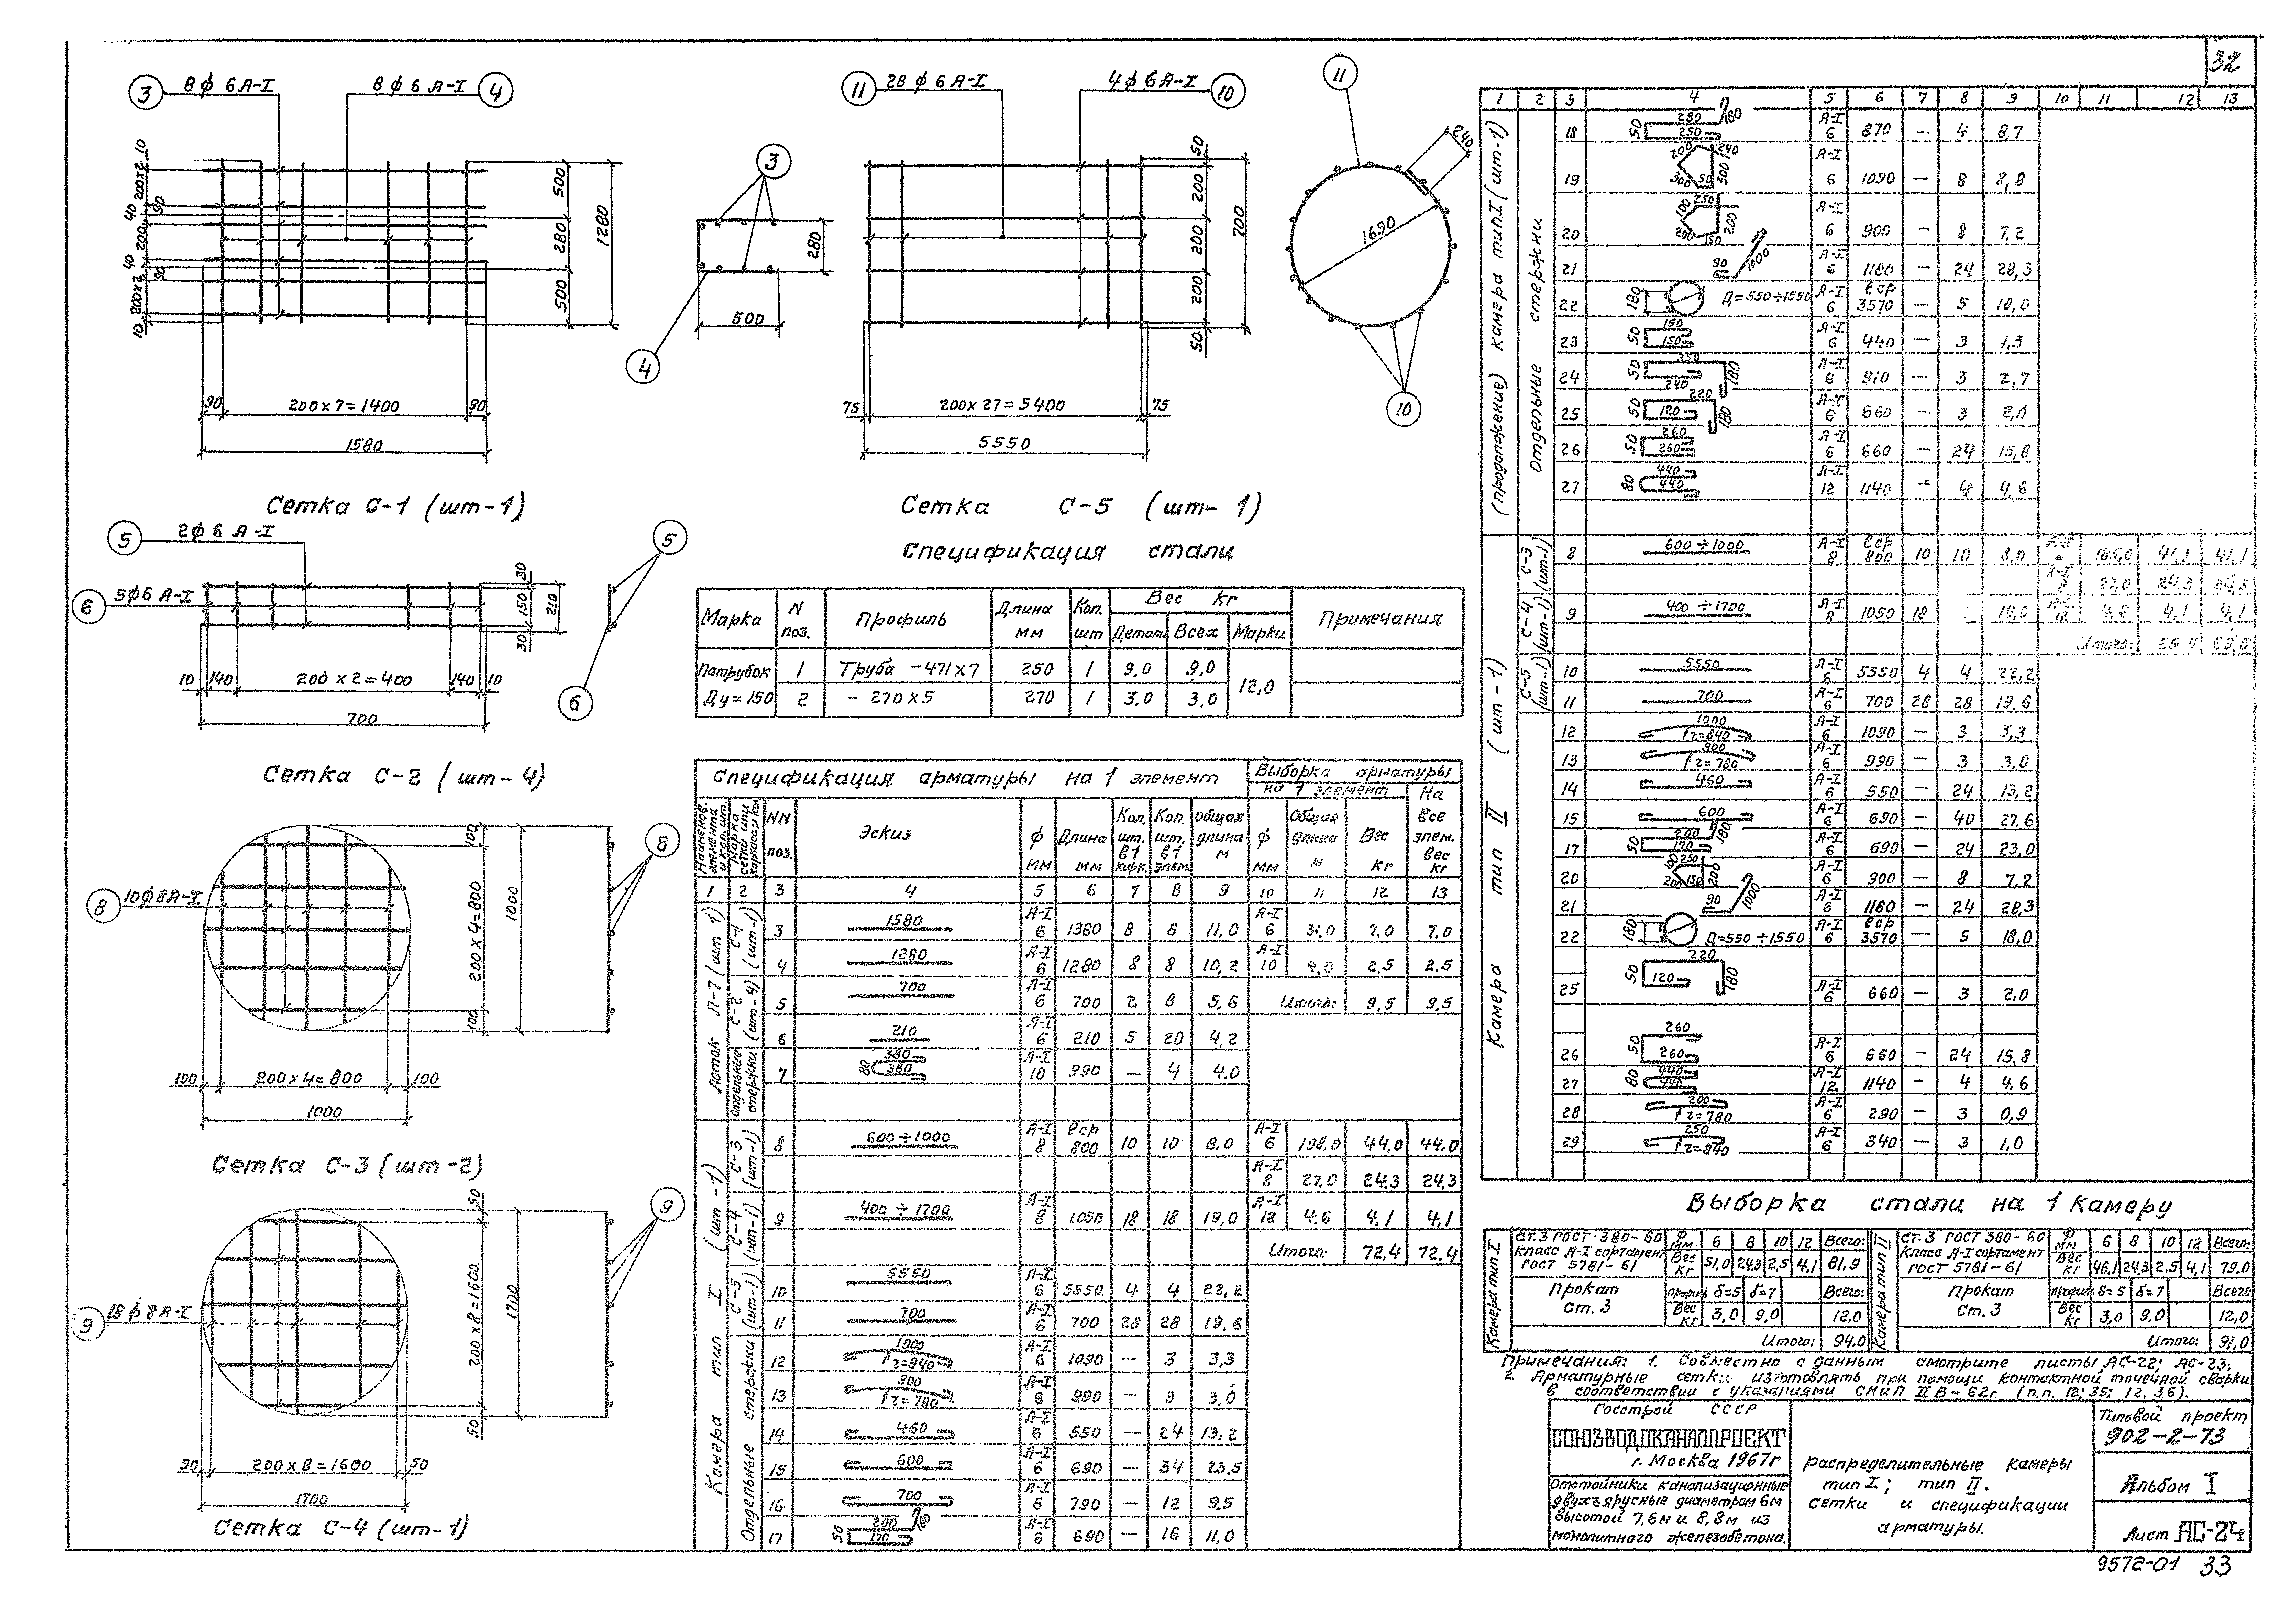 32
3 8ф 6 А-I 8ф 6 А-I 4
10 200х2 40 90 200 40 90 200х2 10
500 280 500 1280
90 200 х 7 = 1400 90
1580
Сетка С-1 (шт-1)
3
280
500
4
11 28 ф 6 А-I 4ф 6 А-I 10
50 200 200 200 50 700
75 200 х 27 = 5400 75
5550
Сетка С-5 (шт- 1)
11
240
1690
10
5 2ф 6 А-I
6 5ф6 А-I
30 150 30 210
10 140 200 х 2 = 400 140 10
700
5
6
Сетка С-2 (шт-4)
8 10ф8А-I
100 200 х 4 = 800 100 1000
100 200 х 4 = 800 100
1000
8
Сетка С-3 (шт-2)
9 18ф 8 А-I
50 200 х 8 = 1600 50 1700
50 200 х 8 = 1600 50
1700
9
Сетка С-4 (шт-1)
Спецификация стали
Марка N поз. Профиль Длина мм Кол. шт Вес кг Примечания
Детали Всех Марки
Патрубок 1 Труба -471х7 250 1 9,0 9,0 12,0
Ду = 150 2 - 270х5 270 1 3,0 3,0
Спецификация арматуры на 1 элемент Выборка арматуры
на 1 элемент На все элем. вес кг
Наименов. элемента и кол. шт. Марка сетки или каркаса и кол. NN поз. Эскиз ф мм Длина мм Кол. шт. в 1 карк. Кол. шт. в 1 элем. общая длина м ф мм Общая длина м Вес кг
1 2 3 4 5 6 7 8 9 10 11 12 13
Лоток Л-7 (шт 1)
С-1 (шт-1)
3 1580 А-I 6 1380 8 8 11,0 А-I 6 31,0 7,0 7,0
4 1280 А-I 6 1280 8 8 10,2 А-I 10 4,0 2,5 2,5
С-2 (шт-4)
5 700 А-I 6 700 2 8 5,6 Итого: 9,5 9,5
6 210 А-I 6 210 5 20 4,2
Отдельные стержни
7 380 80 380 А-I 10 990 — 4 4,0
Камера тип I (шт-1)
С-3 (шт-1)
8 600 ÷ 1000 А-I 8 ℓср 800 10 10 8,0 А-I 6 198,0 44,0 44,0
А-I 8 27,0 24,3 24,3
С-4 (шт-1)
9 400 ÷ 1700 А-I 8 1050 18 18 19,0 А-I 12 4,6 4,1 4,1
Итого: 72,4 72,4
С-5 (шт-1)
10 5550 А-I 6 5550 4 4 22,2
11 700 А-I 6 700 28 28 19,6
Отдельные стержни
12 1000 r=840 А-I 6 1090 — 3 3,3
13 900 r=780 А-I 6 990 — 3 3,0
14 460 А-I 6 550 — 24 13,2
15 600 А-I 6 690 — 34 23,5
16 700 А-I 6 790 — 12 9,5
17 50 200 170 180 А-I 6 690 — 16 11,0
1 2 3 4 5 6 7 8 9 10 11 12 13
(продолжение) камера тип I (шт-1)
Отдельные стержни
18 50 280 250 180 А-I 6 870 — 4 8,7
19 200 240 300 50 300 А-I 6 1090 — 8 8,8
20 100 250 200 200 150 А-I 6 900 — 8 7,2
21 90 1000 А-I 6 1180 — 24 28,3
22 180 Д=550÷1550 А-I 6 ℓср 3570 — 5 18,0
23 50 150 150 А-I 6 440 — 3 1,3
24 50 350 240 180 А-I 6 910 — 3 2,7
25 50 220 120 180 А-I 6 660 — 3 2,0
26 50 260 260 А-I 6 660 — 24 15,8
27 80 440 440 А-I 12 1140 — 4 4,6
Камера тип II (шт-1)
С-3 (шт-1)
8 600 ÷ 1000 А-I 8 ℓср 800 10 10 8,0 41,1 41,1
27,0 24,3 24,3
С-4 (шт-1)
9 400 ÷ 1700 А-I 8 1050 18 19,0 12 4,6 4,1 4,1
Итого:
С-5 (шт-1)
10 5550 А-I 6 5550 4 4 22,2
11 700 А-I 6 700 28 28 19,6
12 1000 r=840 А-I 6 1090 — 3 3,3
13 900 r=780 А-I 6 990 — 3 3,0
14 460 А-I 6 550 — 24 13,2
15 600 А-I 6 690 — 40 27,6
17 50 200 170 180 А-I 6 690 — 24 23,0
20 100 250 200 200 150 А-I 6 900 — 8 7,2
21 90 1000 А-I 6 1180 — 24 28,3
22 180 Д=550 ÷1550 А-I 6 ℓср 3570 — 5 18,0
25 50 220 120 180 А-I 6 660 — 3 2,0
26 50 260 260 А-I 6 660 — 24 15,8
27 80 440 440 А-I 12 1140 — 4 4,6
28 200 r=780 А-I 6 290 — 3 0,9
29 250 r=840 А-I 6 340 — 3 1,0
Выборка стали на 1 камеру
Камера тип I
Ст.3 ГОСТ 380-60 Класс А-I сортамент ГОСТ 5781-61 Ф мм. 6 8 10 12 Всего:
Вес кг 51,0 24,3 2,5 4,1 81,9
Прокат Ст. 3 профиль δ=5 δ=7 Всего:
Вес кг 3,0 9,0 12,0
Итого: 94,0
Камера тип II
Ст.3 ГОСТ 380-60 Класс А-I сортамент ГОСТ 5781-61 Ф мм 6 8 10 12 Всего:
Вес кг 46,1 24,3 2,5 4,1 79,0
Прокат Ст. 3 профиль δ=5 δ=7 Всего
Вес кг 3,0 9,0 12,0
Итого: 91,0
Примечания: 1. Совместно с данным смотрите листы АС-22; АС-23.
2. Арматурные сетки изготовлять при помощи контактной точечной сварки
в соответствии с указаниями СНиП II В-62г. (п.п. 12; 35; 12, 36).
Госстрой СССР
СОЮЗВОДОКАНАЛПРОЕКТ
г. Москва 1967г
Отстойники канализационные
двухъярусные диаметром 6м
высотой 7,6м и 8,8м из
монолитного железобетона.
Распределительные камеры
тип I; тип II.
сетки и спецификации
арматуры.
Типовой проект
902-2-73
Альбом I
Лист АС-24
9572-01 33